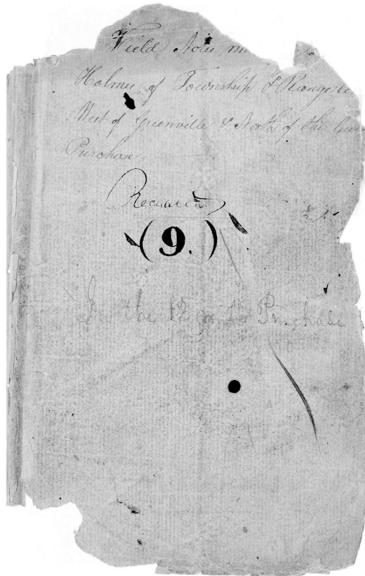 Field Notes
Holmes of Township & Range
West of Greenville & North of the
Purchase
Recorded
(9.)
In the 12 Purchase